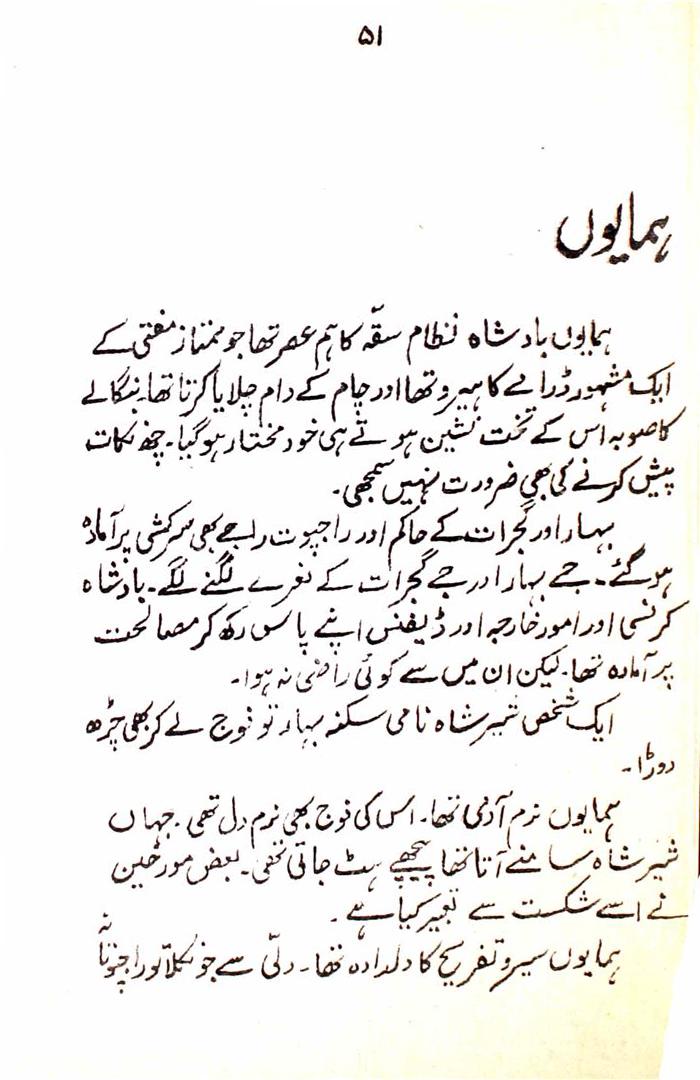 ۵۱
ہمایوں
ہمایوں بادشاہ نظام سقّہ کا ہم عصر تھا جو ممتاز مفتی کے
ایک مشہور ڈرامے کا ہیرو تھا اور چام کے دام چلایا کرتا تھا۔ بنگالے
کا صوبہ اس کے تخت نشین ہوتے ہی خود مختار ہو گیا۔ چھ نکات
پیش کرنے کی بھی ضرورت نہیں سمجھی۔
بہار اور گجرات کے حاکم اور راجپوت راجے بھی سرکشی پر آمادہ
ہو گئے۔ جے بہار اور جے گجرات کے نعرے لگنے لگے۔ بادشاہ
کرنسی اور امور خارجہ اور ڈیفنس اپنے پاس رکھ کر مصالحت
پر آمادہ تھا۔ لیکن ان میں سے کوئی راضی نہ ہوا۔
ایک شخص شیر شاہ نامی سکنہ بہار تو فوج لے کر بھی چڑھ
دوڑا۔
ہمایوں نرم آدمی تھا۔ اس کی فوج بھی نرم دل تھی۔ جہاں
شیر شاہ سامنے آتا تھا پیچھے ہٹ جاتی تھی۔ بعض مورخین
نے اسے شکست سے تعبیر کیا ہے۔
ہمایوں سیر و تفریح کا دلدادہ تھا۔ دلّی سے جو نکلا تو راجپوتانہ